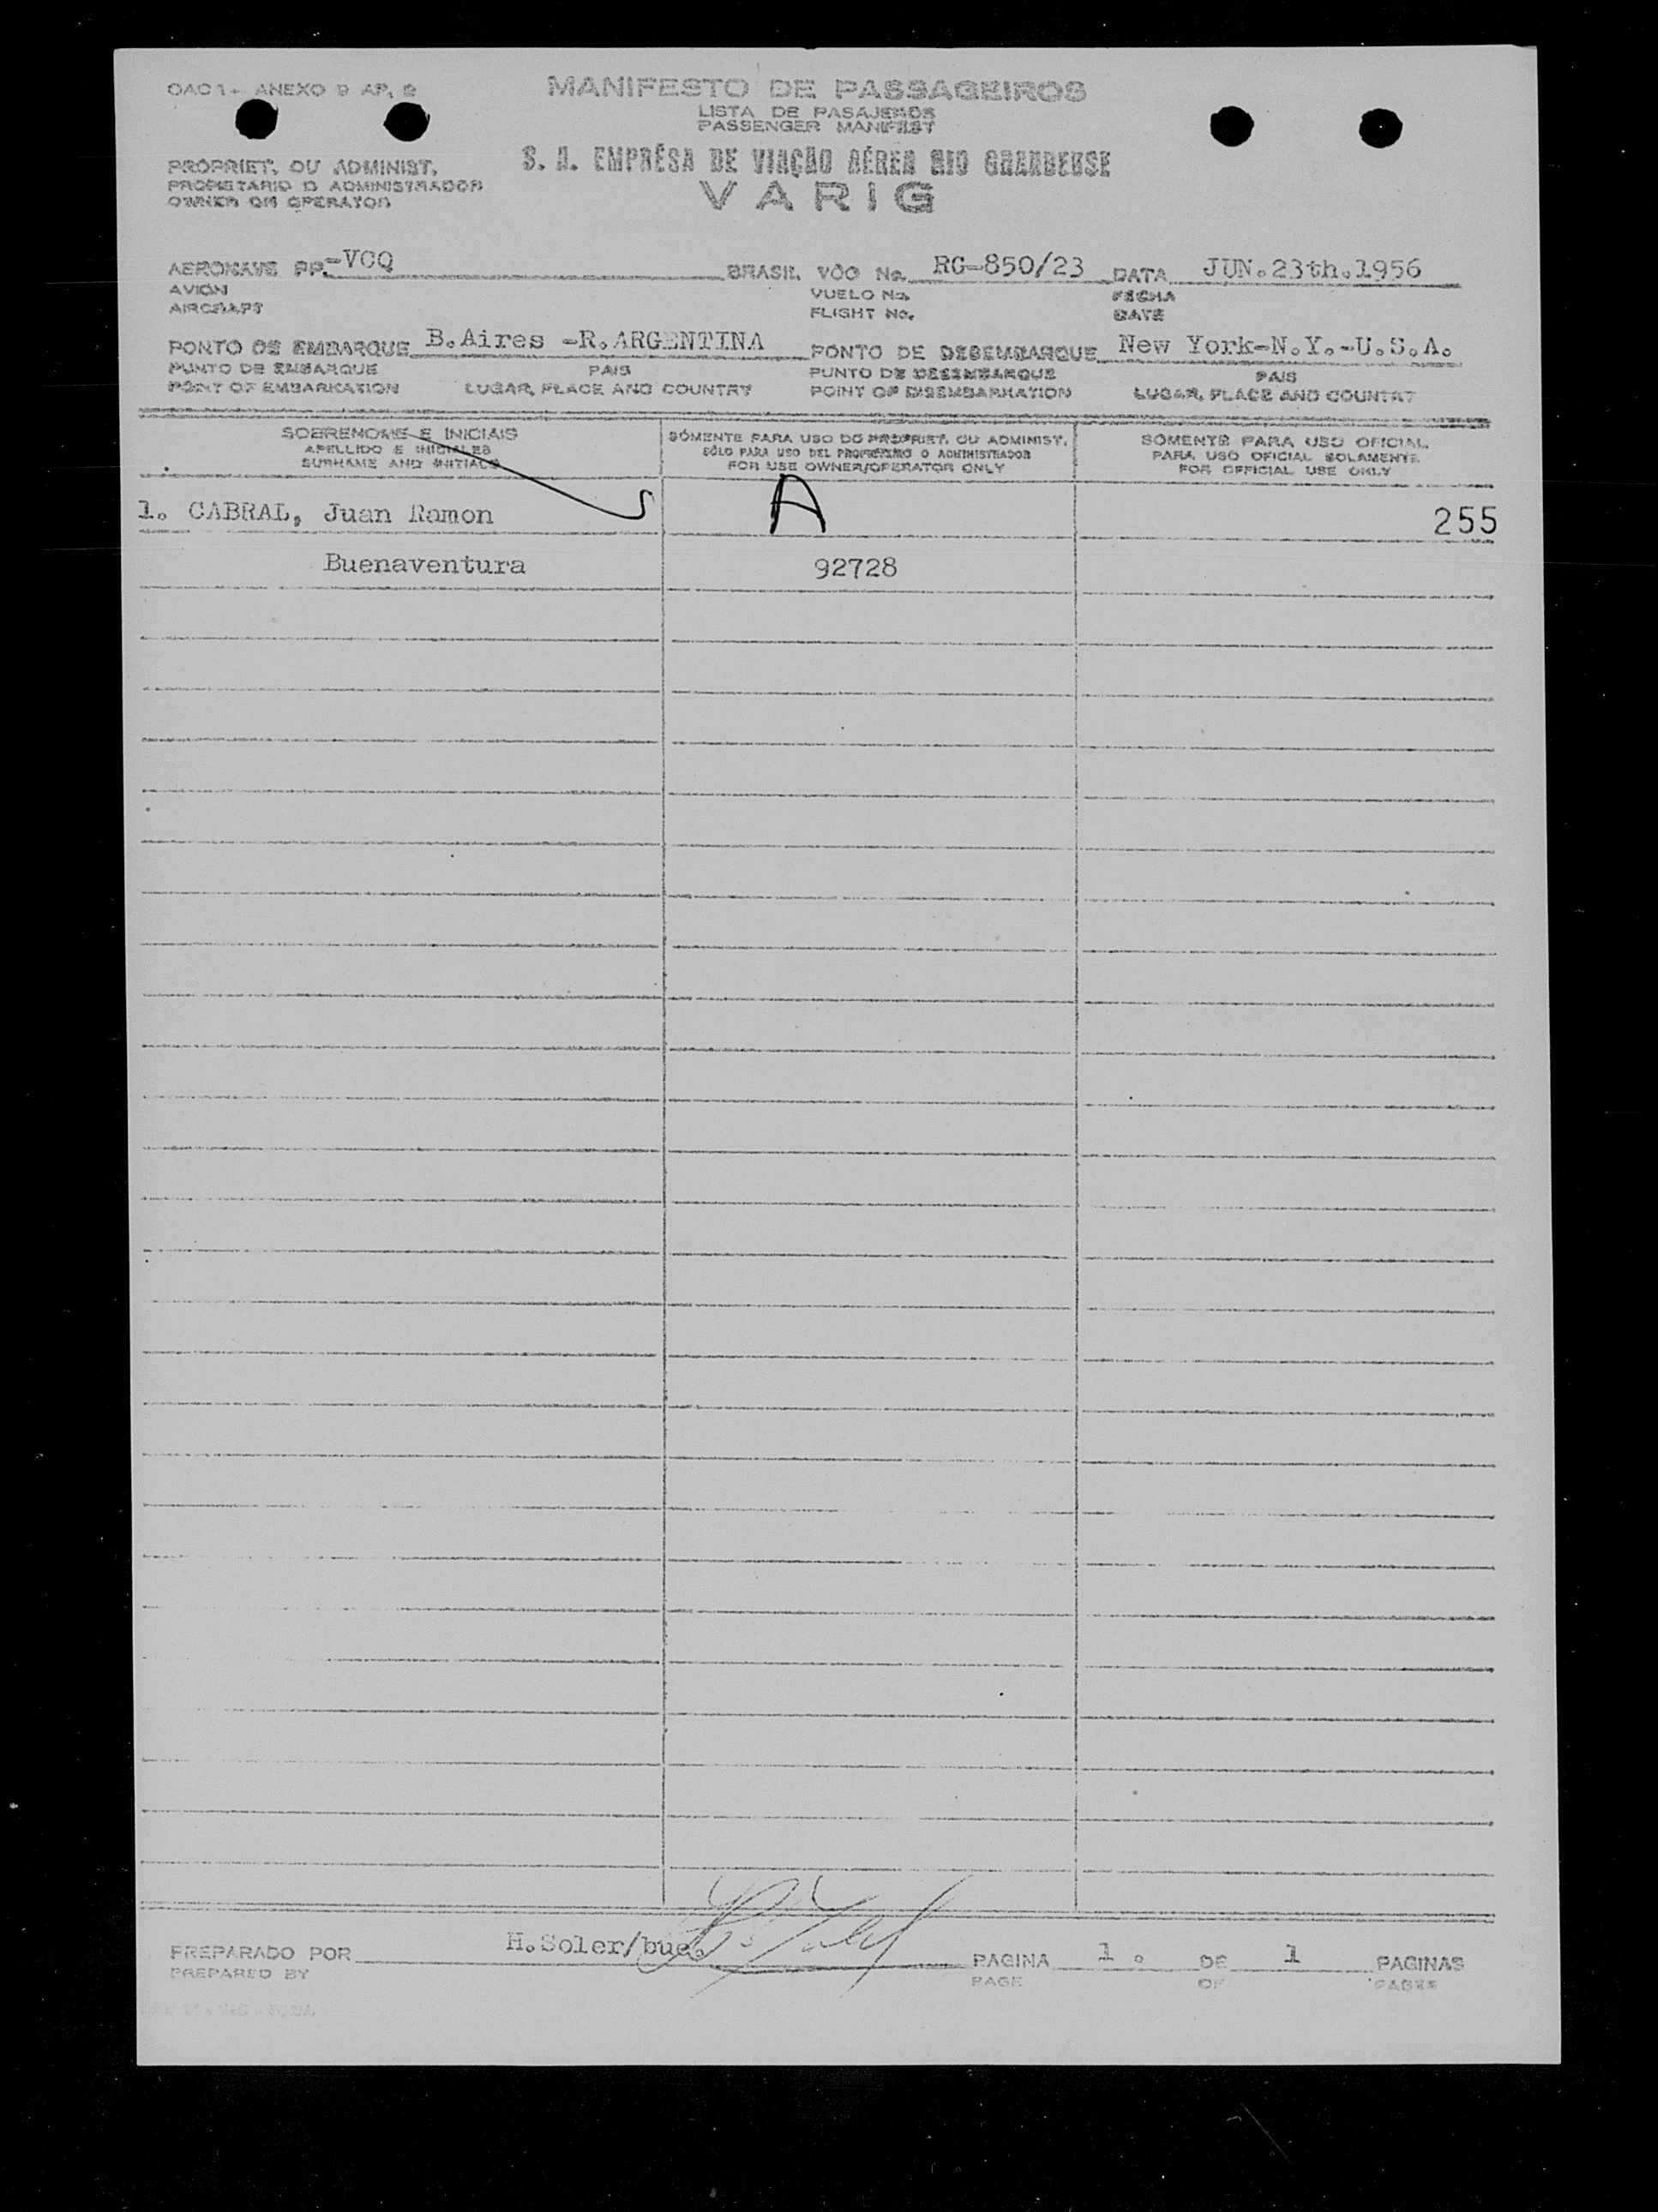 OACI - ANEXO 9 AP. 2
MANIFESTO DE PASSAGEIROS
LISTA DE PASAJEROS
PASSENGER MANIFEST
PROPRIET. OU ADMINIST.
PROPIETARIO O ADMINISTRADOR
OWNER OR OPERATOR
S. A. EMPRÊSA DE VIAÇÃO AÉREA RIO GRANDENSE
VARIG
AERONAVE PP.-VCQ BRASIL VÔO No. RG-850/23 DATA JUN.23th.1956
AVION VUELO No. FECHA
AIRCRAFT FLIGHT No. DATE
PONTO DE EMBARQUE B.Aires -R.ARGENTINA PONTO DE DESEMBARQUE New York-N.Y.-U.S.A.
PUNTO DE EMBARQUE PAIS PUNTO DE DESEMBARQUE PAIS
POINT OF EMBARKATION LUGAR, PLACE AND COUNTRY POINT OF DISEMBARKATION LUGAR, PLACE AND COUNTRY
SOBRENOME E INICIAIS SÓMENTE PARA USO DO PROPRIET. OU ADMINIST. SÓMENTE PARA USO OFICIAL
APELLIDO E INICIALES SÓLO PARA USO DEL PROPIETARIO O ADMINISTRADOR PARA USO OFICIAL SOLAMENTE
SURNAME AND INITIALS FOR USE OWNER/OPERATOR ONLY FOR OFFICIAL USE ONLY
1. CABRAL, Juan Ramon S A 255
Buenaventura 92728
PREPARADO POR H.Soler/bue. PAGINA 1. DE 1 PAGINAS
PREPARED BY PAGE OF PAGES